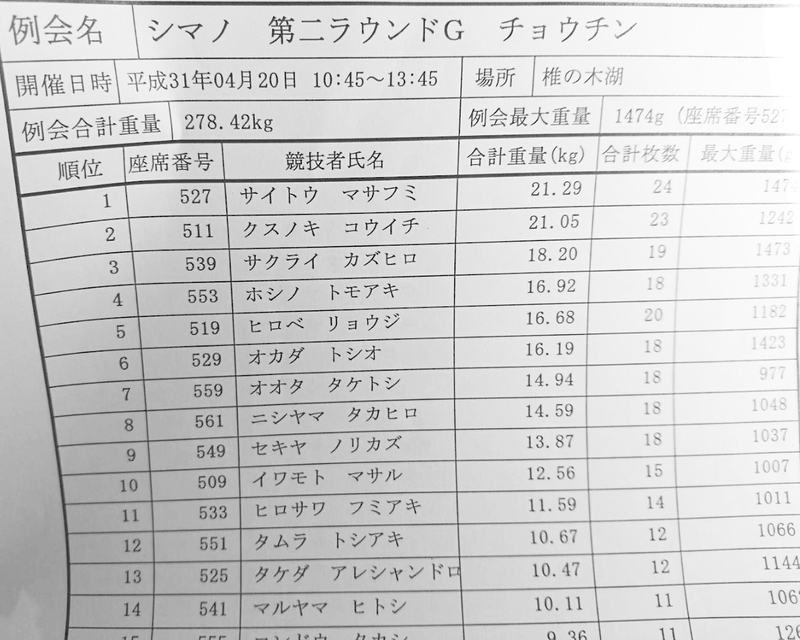 例会名 シマノ 第二ラウンドG チョウチン
開催日時 平成31年04月20日 10:45～13:45 場所 椎の木湖
例会合計重量 278.42kg 例会最大重量 1474g (座席番号527
順位 座席番号 競技者氏名 合計重量(kg) 合計枚数 最大重量(g
1 527 サイトウ マサフミ 21.29 24 1474
2 511 クスノキ コウイチ 21.05 23 1242
3 539 サクライ カズヒロ 18.20 19 1473
4 553 ホシノ トモアキ 16.92 18 1331
5 519 ヒロベ リョウジ 16.68 20 1182
6 529 オカダ トシオ 16.19 18 1423
7 559 オオタ タケトシ 14.94 18 977
8 561 ニシヤマ タカヒロ 14.59 18 1048
9 549 セキヤ ノリカズ 13.87 18 1037
10 509 イワモト マサル 12.56 15 1007
11 533 ヒロサワ フミアキ 11.59 14 1011
12 551 タムラ トシアキ 10.67 12 1066
13 525 タケダ アレシャンドロ 10.47 12 1144
14 541 マルヤマ ヒトシ 10.11 11 106
15 555 コンドウ タカシ 9.36 11